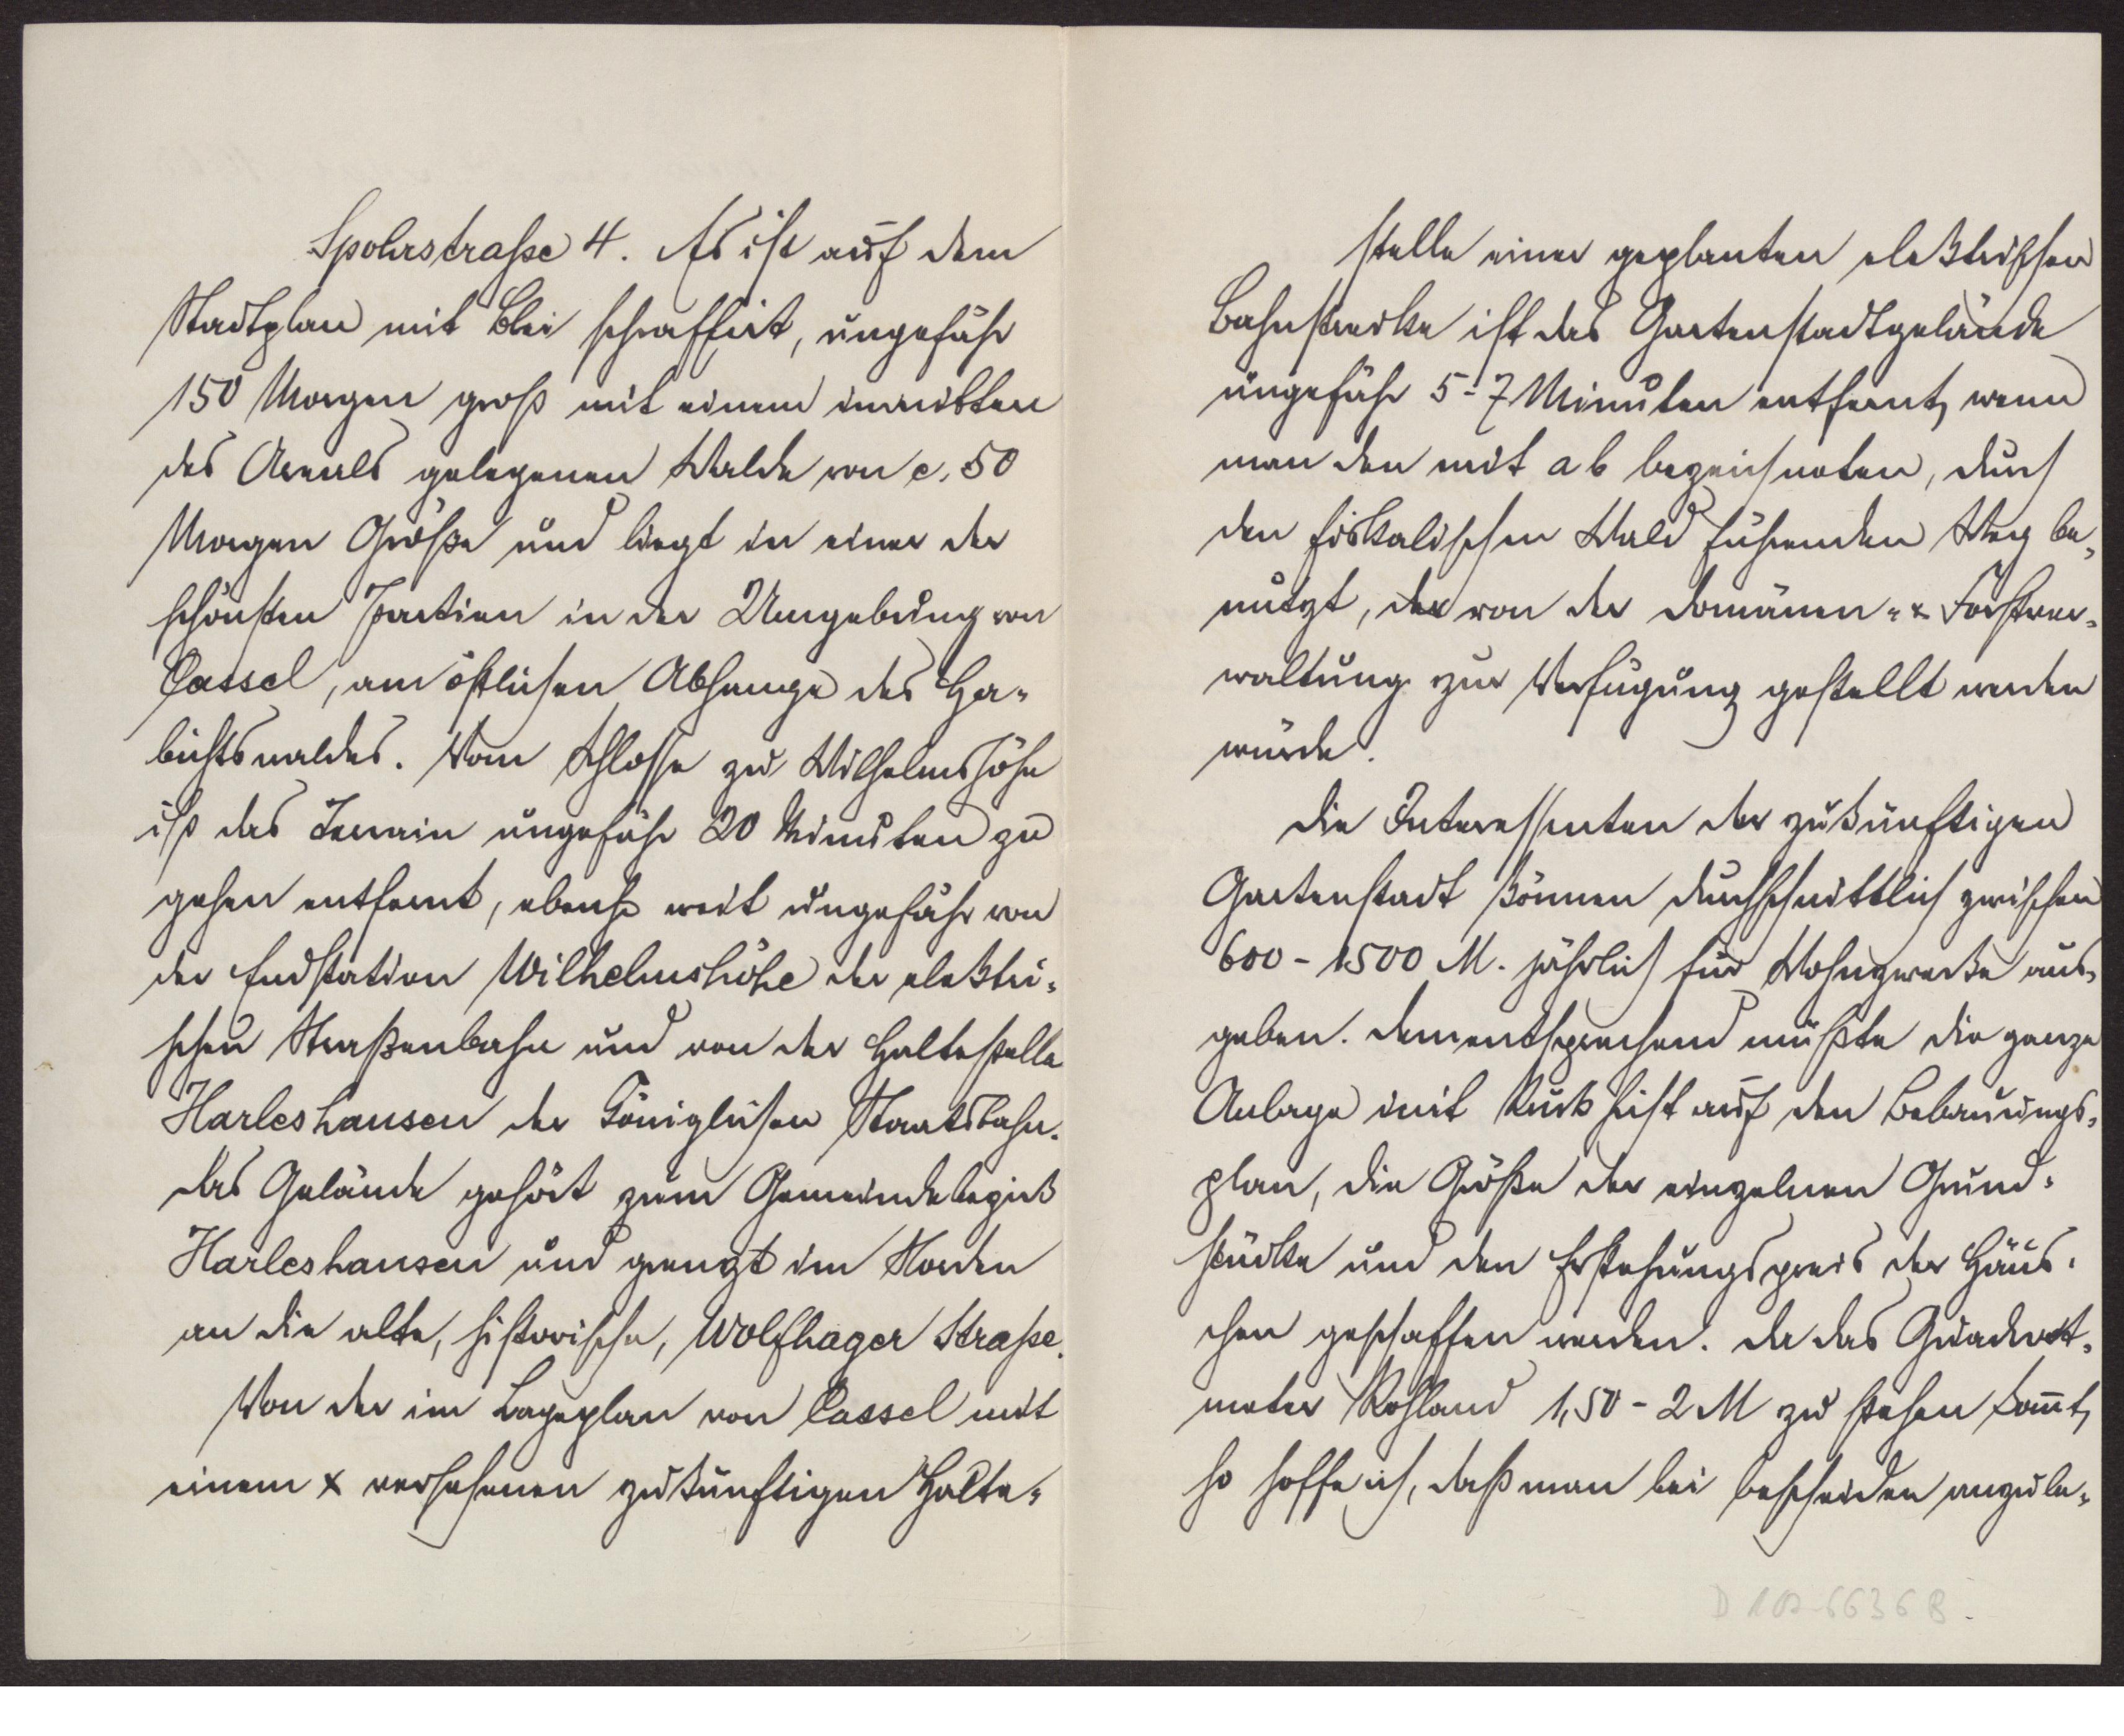 Spohrstraße 4. Es ist auf dem
Stadtplan mit Blei schraffirt, ungefähr
150 Morgen groß mit einem inmitten
des Areals gelegenen Walde von c. 50
Morgen Größe und liegt in einer der
schönsten Partien in der Umgebung von
Cassel, am östlichen Abhange des Ha-
bichtswaldes. Vom Schlosse zu Wilhelmshöhe
ist das Terrain ungefähr 20 Minuten zu
gehen entfernt, ebenso weit ungefähr von
der Endstation Wilhelmshöhe der elektri-
schen Straßenbahn und von der Haltestelle
Harleshausen der Königlichen Staatsbahn.
Das Gelände gehört zum Gemeindebezirk
Harleshausen und grenzt im Norden
an die alte, historische, Wolfhager Straße.
Von der im Lageplan von Cassel mit
einem x versehenen zukünftigen Halte-
stelle einer geplanten elektrischen
Bahnstrecke ist das Gartenstadtgelände
ungefähr 5-7 Minuten entfernt, wenn
man den mit a b bezeichneten, durch
den fiskalischen Wald führenden Weg be-
nutzt, der von der Domänen- & Forstver-
waltung zur Verfügung gestellt werden
würde.
Die Interessenten der zukünftigen
Gartenstadt können durchschnittlich zwischen
600-1500 M. jährlich für Wohnzwecke aus-
geben. Dementsprechend müßte die ganze
Anlage mit Rücksicht auf den Bebauungs-
plan, die Größe der einzelnen Grund-
stücke und den Erstehungspreis der Häus-
chen geschaffen werden. Da das Quadrat-
meter Rohland 1,50-2 M zu stehen kom̄t,
so hoffe ich, daß man bei bescheiden anzule-
D 102-6636 B